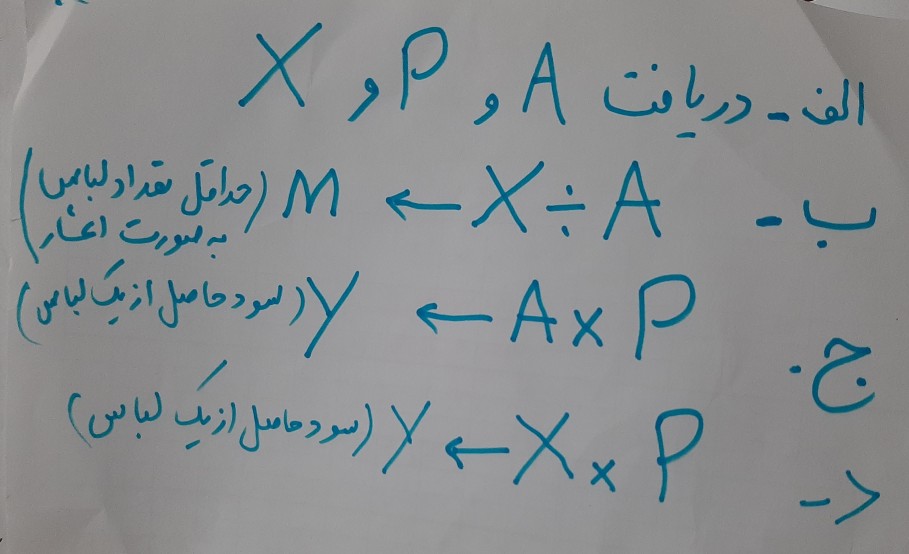 الف - دریافت A و P و X
ب - X ÷ A ← M (حداقل تعداد لباس
به صورت اعشار)
ج. A x P ← Y (سود حاصل از یک لباس)
د - X x P ← Y (سود حاصل از یک لباس)